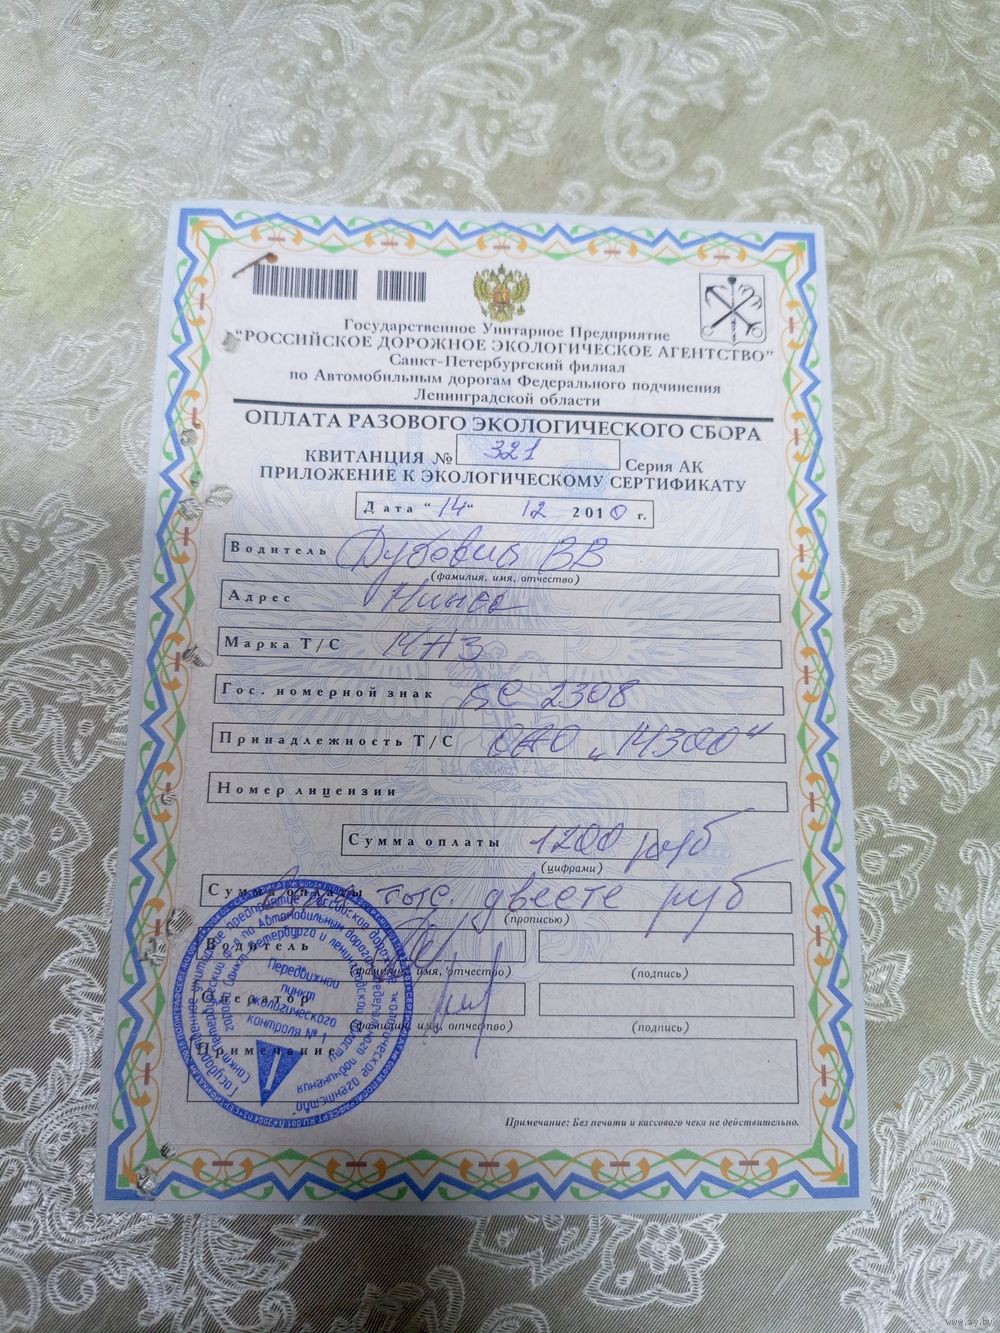 Государственное Унитарное Предприятие
"РОССИЙСКОЕ ДОРОЖНОЕ ЭКОЛОГИЧЕСКОЕ АГЕНТСТВО"
Санкт-Петербургский филиал
по Автомобильным дорогам Федерального подчинения
Ленинградской области
ОПЛАТА РАЗОВОГО ЭКОЛОГИЧЕСКОГО СБОРА
КВИТАНЦИЯ № 321 Серия АК
ПРИЛОЖЕНИЕ К ЭКОЛОГИЧЕСКОМУ СЕРТИФИКАТУ
Дата "14" 12 2010 г.
Водитель ВВ
(фамилия, имя, отчество)
Адрес
Марка Т/С МАЗ
Гос. номерной знак 2308
Принадлежность Т/С ОАО
Номер лицензии
Сумма оплаты 1200 руб
(цифрами)
Сумма оплаты тыс. двести руб
(прописью)
Водитель
(фамилия, имя, отчество) (подпись)
Оператор
(фамилия, имя, отчество) (подпись)
Примечание
Передвижной
пункт
экологического
контроля № 1
Примечание: Без печати и кассового чека не действительно.
www.ay.by